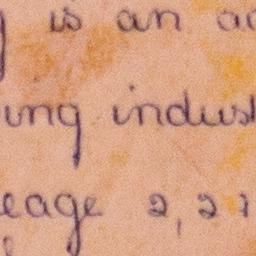 is an
ing indust
eage 2,27